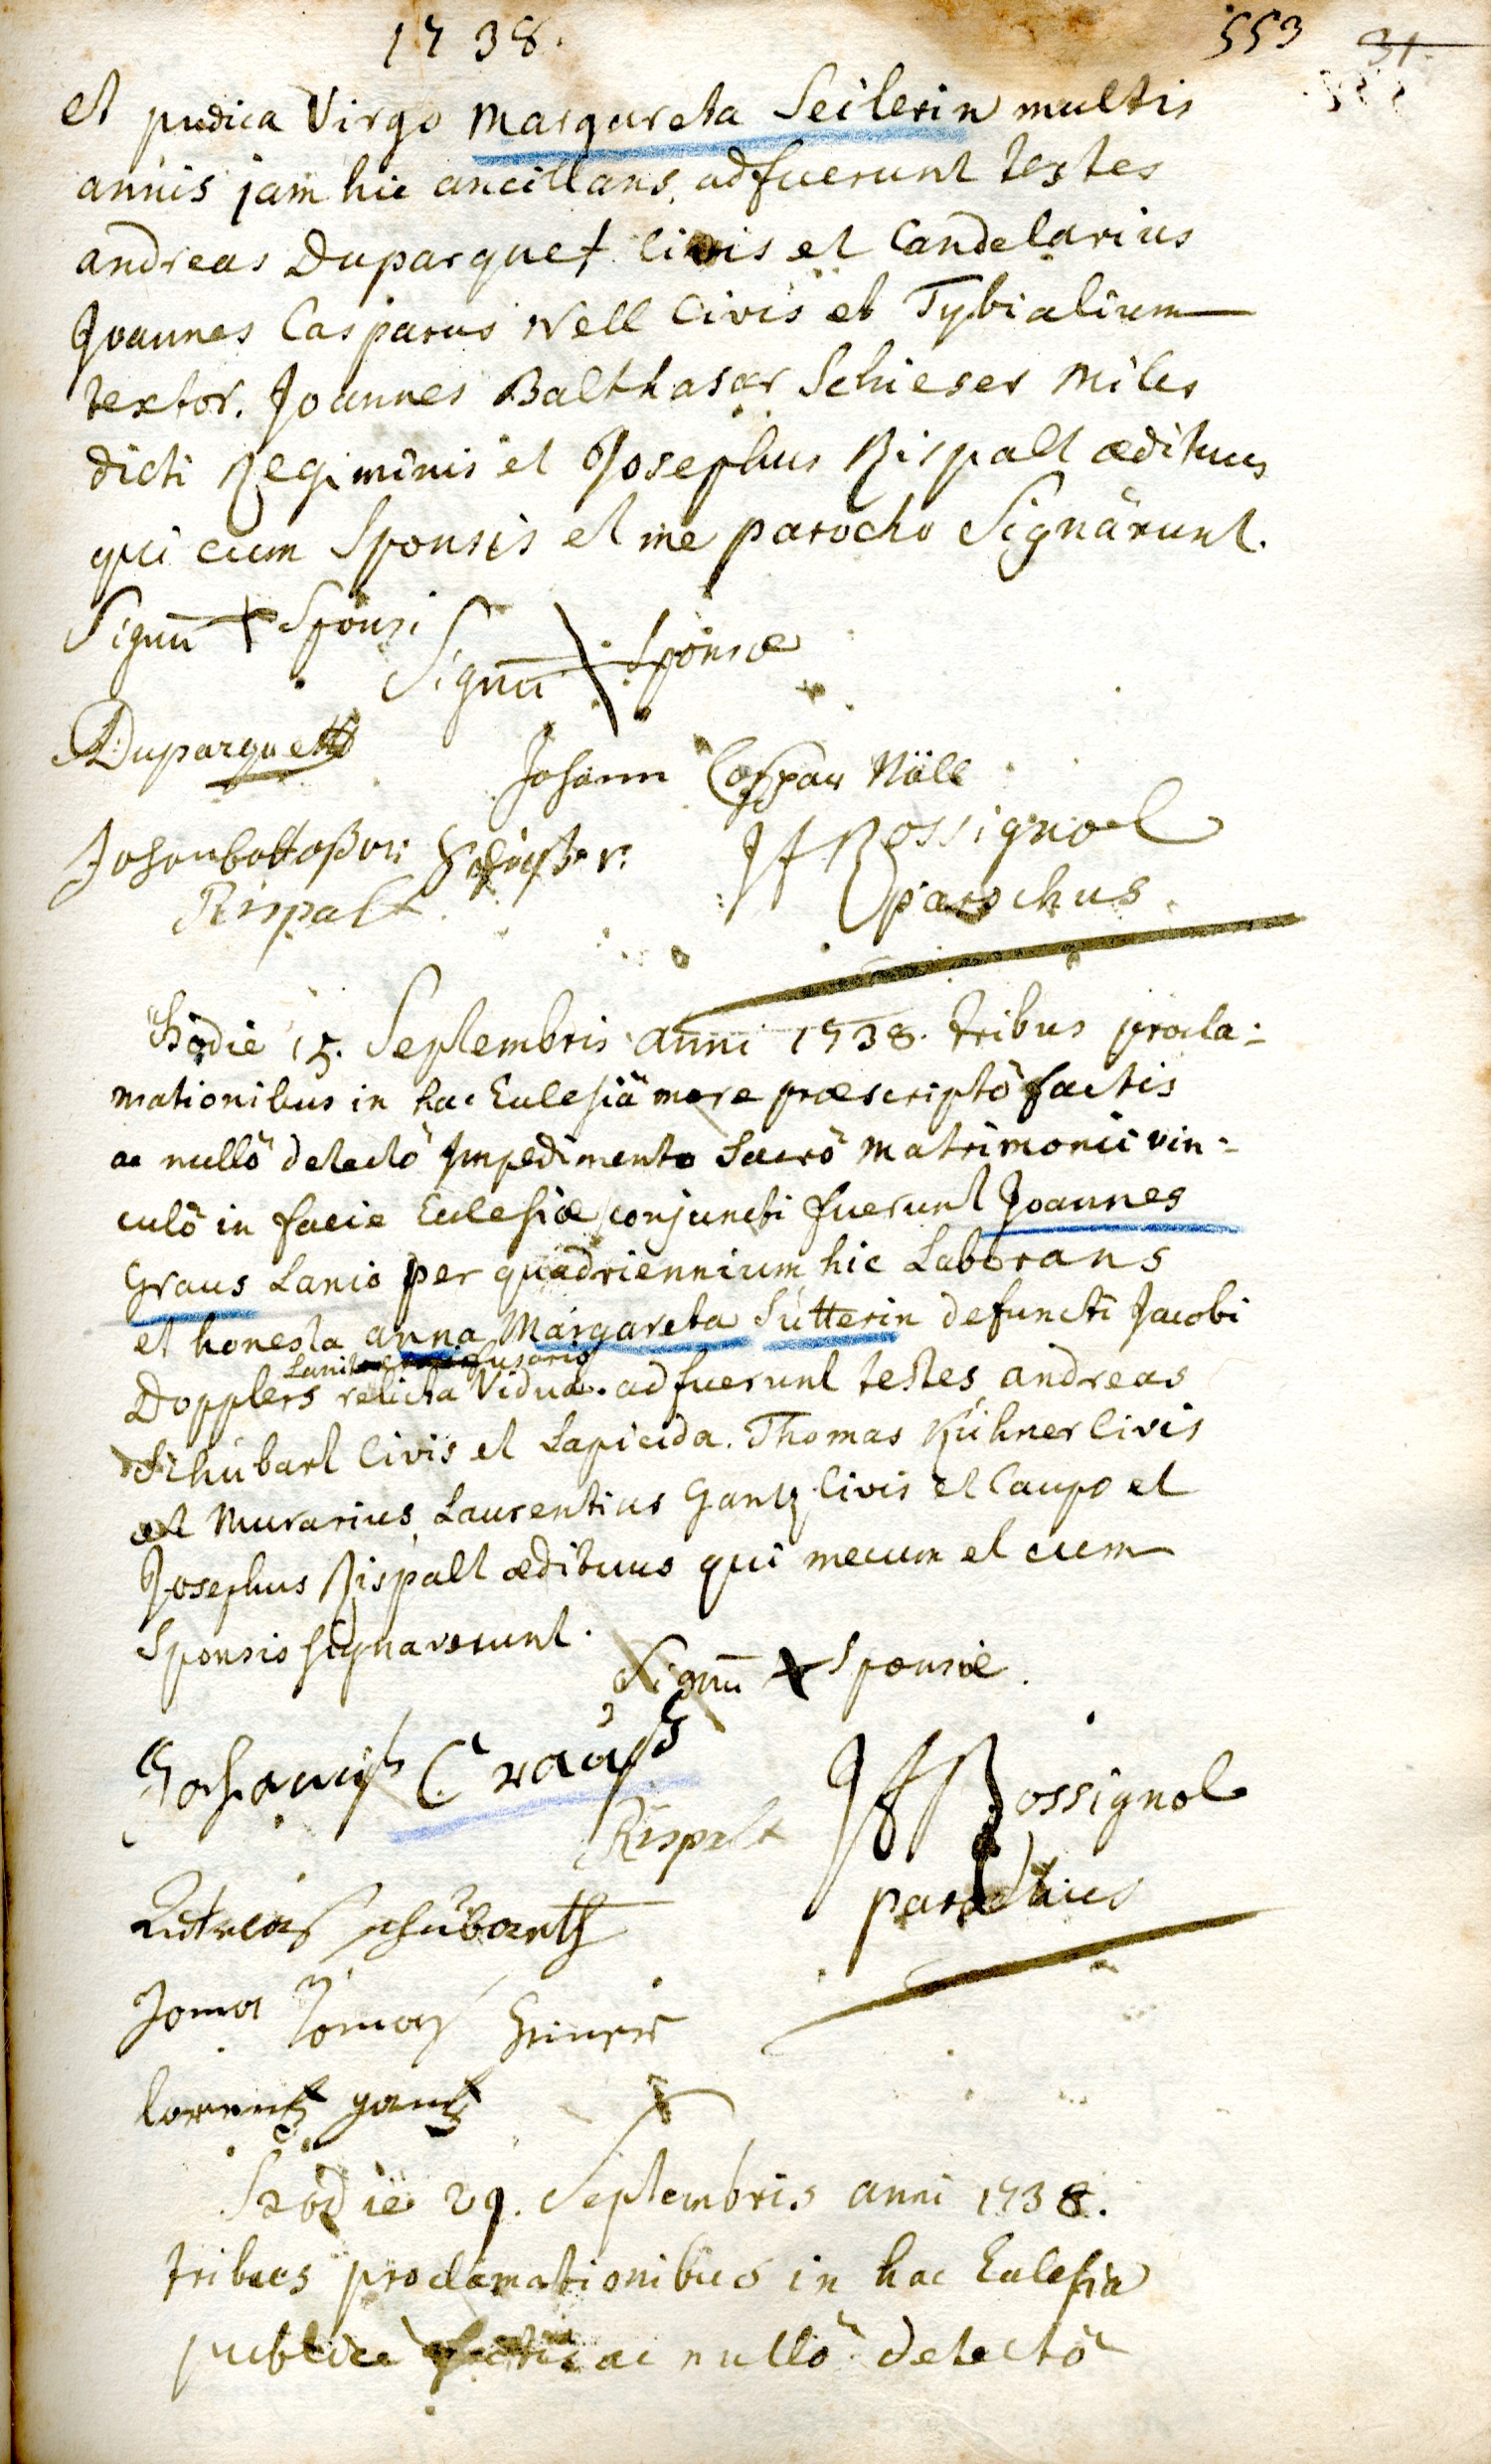 1738.
553
31.
et pudica Virgo Margareta Seilerin multis
annis jam hic ancillans, adfuerunt testes
andreas Duparquet Civis et Candelarius
Joannes Casparus Nell Civis et Tybialium
textor. Joannes Balthasar Schieser Miles
dicti Regiminis et Josephus Rispalt ædituus
qui cum Sponsis et me parocho Signârunt.
Signū + Sponsi
Signū + Sponsæ
Duparquett
Johann Caspar Nöll
Rispalt
Rossignol
parochus
Hodie 15. Septembris anni 1738. tribus procla:
mationibus in hac Eclesiâ more præscriptô factis
ac nullô detectô Impedimento Sacrô Matrimonii vin:
culô in facie Eclesiæ conjuncti fuerunt Joannes
Graus Lanio per quadriennium hic Laborans
et honesta anna Margareta Sútterin defuncti Jacobi
Dopplers relicta Vidua. adfuerunt testes andreas
Schúbart Civis et Lapicida. Thomas Kúhner Civis
et Murarius, Laurentius Gantz Civis et Caupo et
Josephus Rispalt ædituus qui mecum et cum
Sponsis signaverunt.
Signū + Sponsæ.
Crauß
Rispalt
Rossignol
parochus
schúbarth
lorentz gantz
Hodie 29. Septembris anni 1738.
tribus proclamationibus in hac Eclesia
publice factis ac nullô detectô